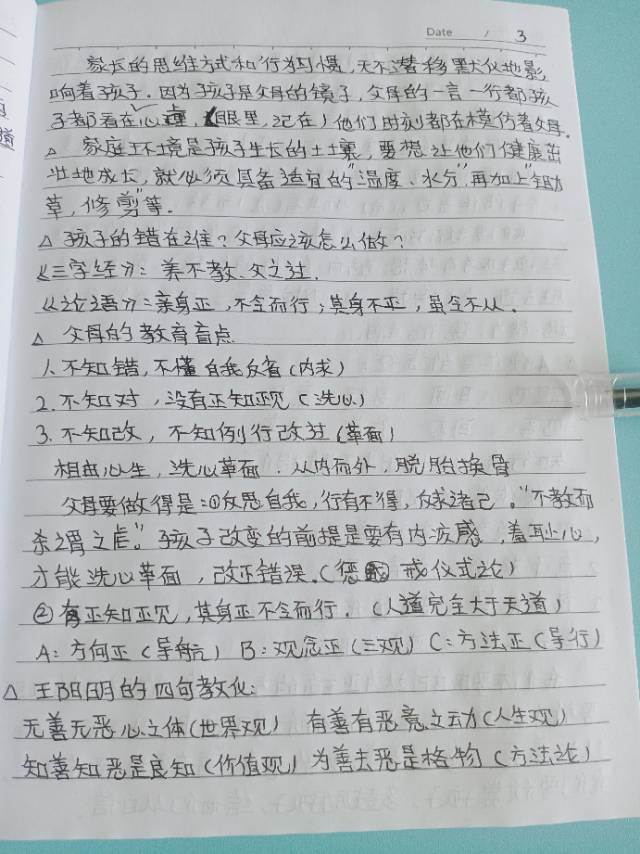 Date / 3
家长的思维方式和行为习惯,无不潜移默化地影
响着孩子。因为孩子是父母的镜子,父母的一言一行都孩
子都看在心里,(眼里,记在)他们时刻都在模仿着父母。
△ 家庭环境是孩子生长的土壤,要想让他们健康茁
壮地成长,就必须具备适宜的"温度、水分"再加上"锄
草,修剪"等.
△孩子的错在谁?父母应该怎么做?
《三字经》:养不教、父之过.
《论语》:亲身正,不令而行;其身不正,虽令不从.
△ 父母的教育盲点
1.不知错,不懂自我反省(内求)
2.不知对,没有正知正见(洗心)
3.不知改,不知例行改过(革面)
相由心生,洗心革面.从内而外,脱胎换骨
父母要做得是:①反思自我,行有不得,反求诸己。"不教而
杀谓之虐。"孩子改变的前提是要有内疚感,羞耻心,
才能洗心革面,改正错误.(惩戒仪式论)
②有正知正见,其身正不令而行.(人道完全大于天道)
A:方向正(导航) B:观念正(三观) C:方法正(导行)
△ 王阳明的四句教化:
无善无恶心之体(世界观) 有善有恶意之动(人生观)
知善知恶是良知(价值观) 为善去恶是格物(方法论)